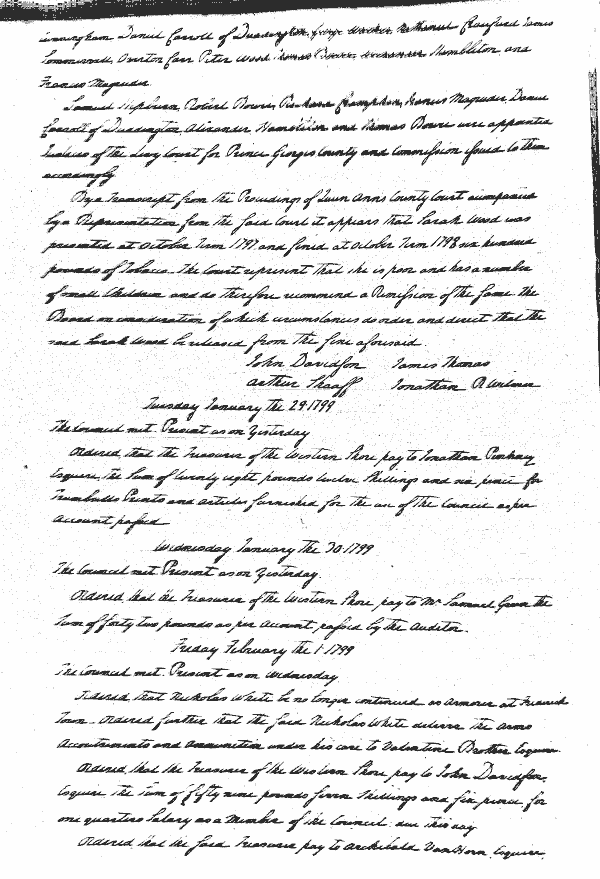 Daniel Carroll of Duddington, George Walker Nathaniel Craufurd James
Overton Carr Peter Wood Thomas Bowie Alexander Hambleton and
Francis Magruder
Samuel Hepburn, Robert Bowie, Richard Crampken, Francis Magruder, Daniel
Carroll of Duddington Alexander Hamilton and Thomas Bowie were appointed
Justices of the Levy Court for Prince Georges County and Commission issued to them
accordingly
By a Transcript from the Proceedings of Queen Anns County Court accompanied
by a Representation from the said Court it appears that Sarah Wood was
presented at October Term 1797 and fined at October Term 1798 six hundred
pounds of Tobacco. The Court represent that she is poor and has a number
of small Children and do therefore recommend a Remission of the same. The
Board on consideration of which circumstances do order and direct that the
said Sarah Wood be released from the fine aforesaid.
John Davidson James Thomas
Arthur Shaaff Jonathan R Wilmer
Tuesday January the 29 1799
The Council met. Present as on Yesterday
Ordered, that the Treasurer of the Western Shore pay to Jonathan Pinkney
Esquire, the Sum of twenty eight pounds twelve Shillings and six pence for
Trumbulls Prints and articles furnished for the use of the Council as per
Account passed
Wednesday January the 30 1799
The Council met. Present as on Yesterday.
Ordered, that the Treasurer of the Western Shore pay to Mr. Samuel Green the
Sum of forty two pounds as per Account passed by the Auditor.
Friday February the 1 1799
The Council met. Present as on Wednesday
Ordered, that Nicholas White be no longer continued as Armourer at Frederick
Town. Ordered further that the said Nicholas White deliver the Arms
Accoutrements and Ammunition under his care to Valentine Brother Esquire
Ordered, that the Treasurer of the Western Shore pay to John Davidson,
Esquire the Sum of fifty nine pounds seven Shillings and six pence for
one quarters Salary as a Member of the Council due this day
Ordered that the said Treasurer pay to Archibald Van Horn Esquire,